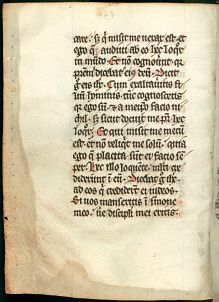 care. sed qui misit me verax est. et
ego que audivi ab eo hec loquor
in mundo. Et non cognoverunt quia
patrem dicebat eis deum. Dicit
ergo eis ihs. Cum exaltaveritis fi
lium hominis. tunc cognoscetis
quia ego sum. et a meipso facio ni
chil. sed sicut docuit me pater hec
loquor. Et qui misit me mecum
est. et non reliquit me solum. quia
ego que placita sunt ei facio sem
per. Hec illo loquente. multi cre
diderunt in eum. Dicebat ergo ihs
ad eos qui crediderunt ei iudeos.
Si vos manseritis in sermone
meo. vere discipuli mei eritis.